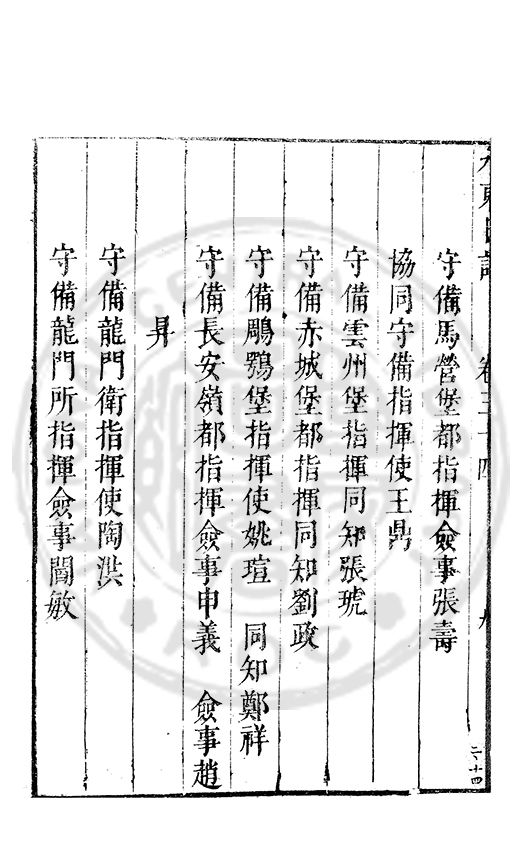 守備馬營堡都指揮僉事張壽
協同守備指揮使王鼎
守備雲州堡指揮同知張琥
守備赤城堡都指揮同知劉政
守備鵰鶚堡指揮使姚瑄　同知鄭祥
守備長安嶺都指揮僉事申義　僉事趙
昇
守備龍門衛指揮使陶淇
守備龍門所指揮僉事閻敏
卷三十四
九
二十四